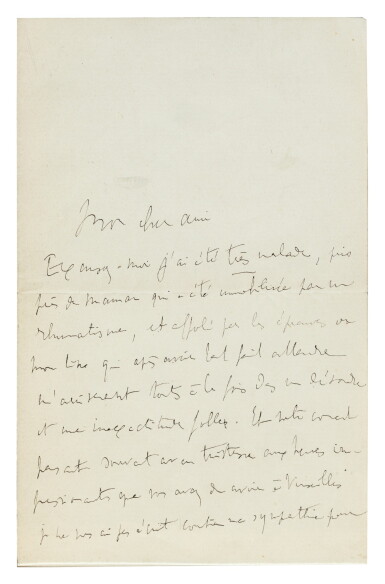 Mon cher ami
Excusez-moi j'ai été très malade, puis
près de maman qui a été immobilisée par un
rhumatisme, et affolé par les épreuves de
mon livre qui après avoir tant fait attendre
m'arrivèrent toutes à la fois dans un désordre
et une inexactitude folles. Et cependant
pensant souvent avec tristesse aux heures im-
pressionnantes que vous avez dû avoir à Versailles
je ne vous ai pas écrit combien ma sympathie pour